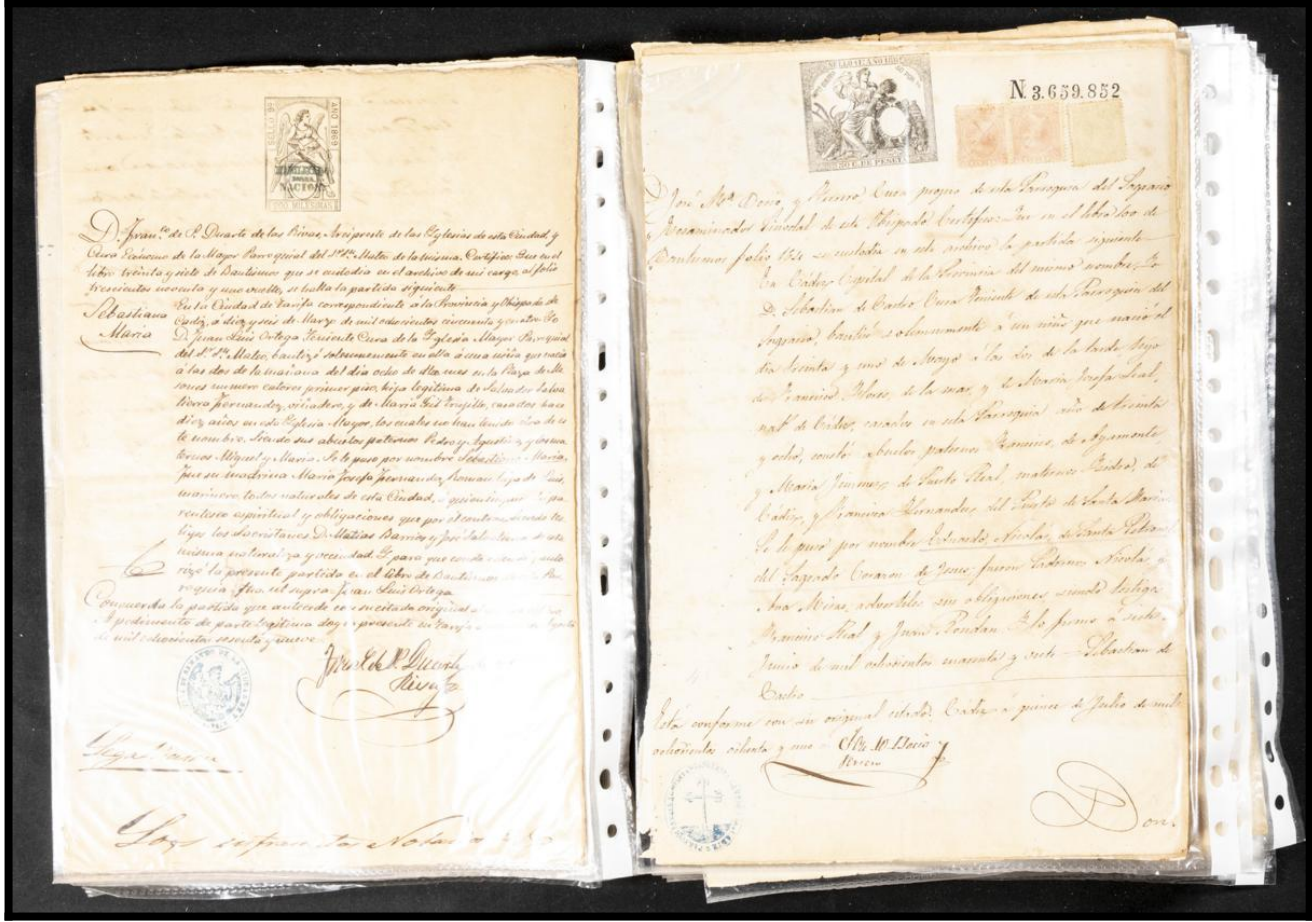 SELLO 9º AÑO 1869
HABILITADO
POR LA
NACION
200 MILESIMAS
D. Fran.co de P. Duarte de las Rivas, Arcipreste de las Yglesias de esta Ciudad, y
Cura Ecónomo de la Mayor Parroquial del S.r S.n Mateo de la misma. Certifico: Que en el
libro treinta y siete de Bautismos que se custodia en el archivo de mi cargo, al folio
trescientos noventa y uno vuelto, se halla la partida siguiente
Sebastiana
Maria
En la Ciudad de Tarifa correspondiente á la Provincia y Obispado de
Cadiz, á diez y seis de Marzo de mil ochocientos cincuenta y cuatro Yo
D. Juan Luis Ortega Teniente Cura de la Yglesia Mayor Parroquial
del S.r S.n Mateo, bautizé solemnemente en ella á una niña que nacio
á las dos de la mañana del dia ocho de dho mes en la Plaza de Me
sones numero catorce primer piso, hija legitima de Salvador Salva
tierra Fernandez, viñadero, y de Maria Gil Trujillo, casados hace
diez años en esta Yglesia Mayor, los cuales no han tenido otra de es
te nombre. Siendo sus abuelos paternos Pedro y Agustina y los ma
ternos Miguel y Maria. Se le puso por nombre Sebastiana Maria,
Fue su madrina Maria Josefa Fernandez Roman hija de Luis,
marinero, todos naturales de esta Ciudad, á quien el pa
rentesco espiritual y obligaciones que por él contrae, siendo tes
tigos los Sacristanes D. Matias Barrios y José Salvatierra de esta
misma naturaleza y vecindad. Y para que conste
la presente partida en el libro de Bautismos
roquia fha ut supra = Juan Luis Ortega
Concuerda la partida que antecede con su citada original
A pedimento de parte legitima doy la presente en Tarifa
de mil ochocientos sesenta y nueve
Fran.co de P. Duarte
Rivas
Los infrascritos Notarios
SELLO 11º AÑO 1881
N. 3.659.852
D. José M.a Ocio, y Cura propio de esta Parroquia del Sagrario
Secsaminador Sinodal de este Obispado Certifico: Que en el libro 100 de
Bautismos folio se custodia en este archivo la partida siguiente
En Cádiz, Capital de la Provincia del mismo nombre, Yo
D. Sebastian de Castro Cura Teniente de esta Parroquia del
Sagrario, bautizé solemnemente á un niño que nació el
dia treinta y uno de Mayo á las dos de la tarde hijo
de Francisco Flores, de la mar, y de Maria Josefa Leal,
nat.s de Cádiz, casados en esta Parroquia año de treinta
y ocho, consté: abuelos paternos Francisco, de Ayamonte
y Maria Jimenez de Puerto Real, maternos Isidro, de
Cádiz, y Francisca Hernandez del Puerto de Santa Maria
Se le puso por nombre Eduardo Nicolás de Santa Petrona
del Sagrado Corazon de Jesus: fueron Padrinos Nicolás y
Ana Meras, advertiles sus obligaciones, siendo testigos
Francisco Real y Juan Rondan. Y lo firmo á siete
Junio de mil ochocientos cuarenta y siete = Sebastian de
Castro
Está conforme con su original citado. Cádiz á quince de Julio de mil
ochocientos ochenta y uno
Don